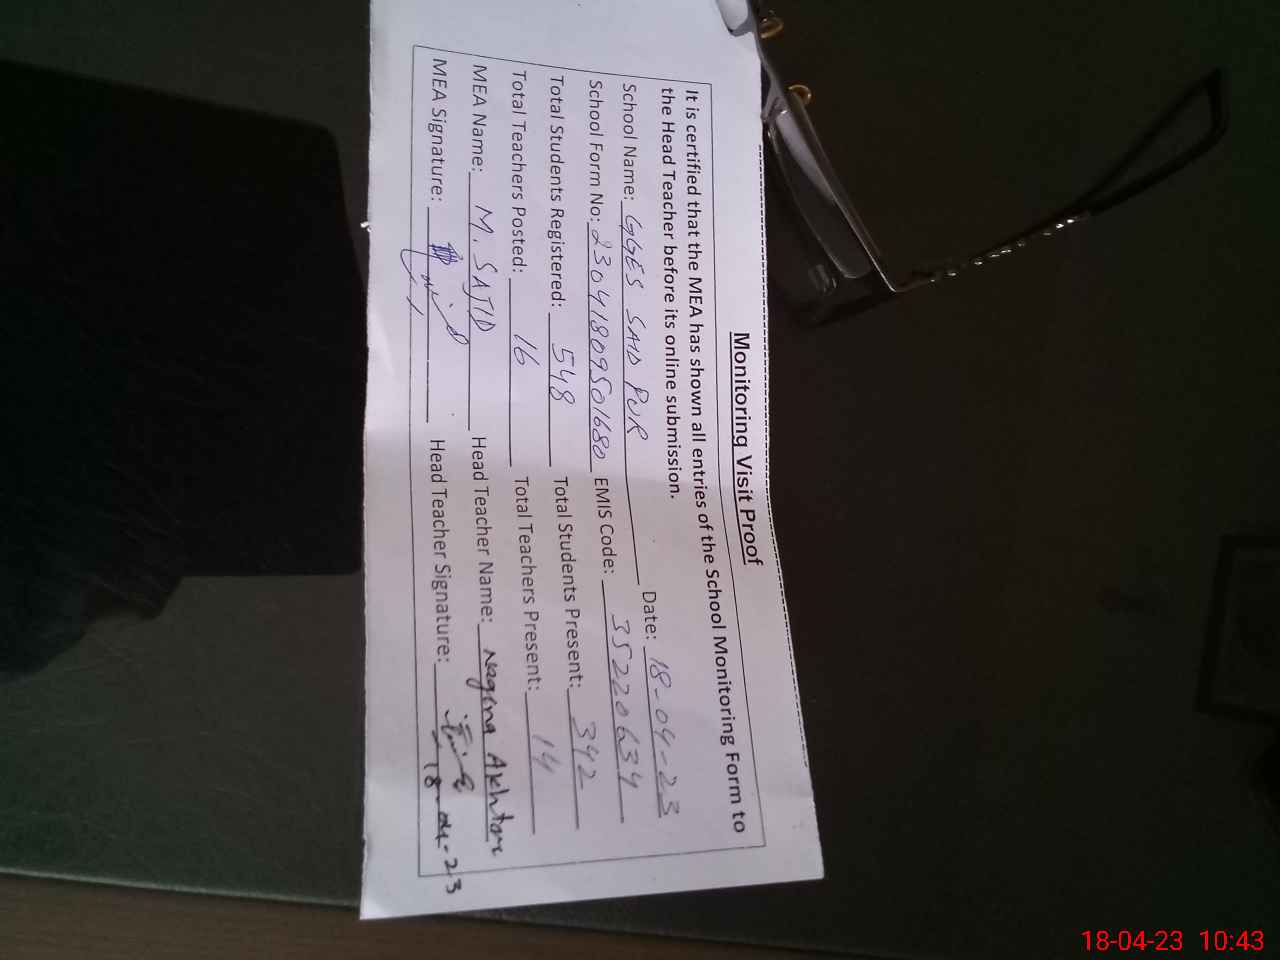 Monitoring Visit Proof
It is certified that the MEA has shown all entries of the School Monitoring Form to
the Head Teacher before its online submission.
School Name: GGES SAID PUR Date: 18-04-23
School Form No: 23041809501680 EMIS Code: 35220634
Total Students Registered: 548 Total Students Present: 342
Total Teachers Posted: 16 Total Teachers Present: 14
MEA Name: M. SAJID Head Teacher Name: Nagina Akhtar
MEA Signature: Head Teacher Signature:
18-04-23
18-04-23 10:43